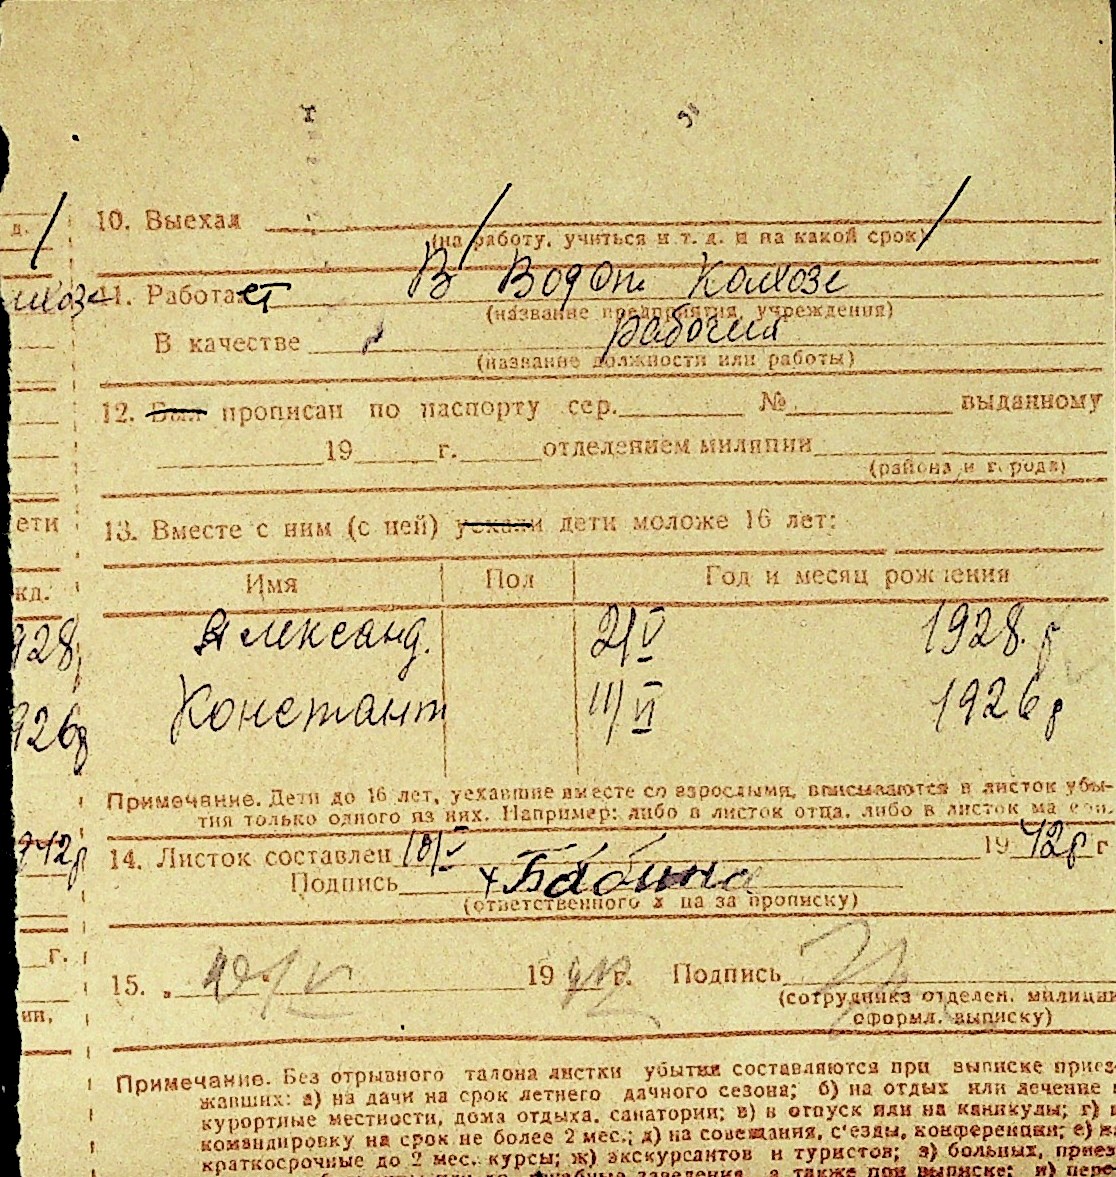 д. 10. Выехал
(на работу, учиться и т. д. и на какой срок)
11. Работает в Водоп. Колхозе
(название предприятия, учреждения)
В качестве рабочия
(название должности или работы)
12. Был прописан по паспорту сер. № выданному
19 г. отделением милиции
(района и города)
ети 13. Вместе с ним (с ней) уехали дети моложе 16 лет:
жд. Имя Пол Год и месяц рождения
928 Александ. 2/V 1928. г
926г Констант 11/VI 1926 г
Примечание. Дети до 16 лет, уехавшие вместе со взрослыми, вписываются в листок убы-
тия только одного из них. Например: либо в листок отца, либо в листок матери.
942г 14. Листок составлен 10/V 19 42г г
Подпись Бабина
(ответственного лица за прописку)
г. 15. 10/V 19 42 г. Подпись
(сотрудника отделен. милиции
ии, оформл. выписку)
Примечание. Без отрывного талона листки убытия составляются при выписке приез-
жавших: а) на дачи на срок летнего дачного сезона; б) на отдых или лечение
курортные местности, дома отдыха, санатории; в) в отпуск или на каникулы; г)
командировку на срок не более 2 мес.; д) на совещания, с'езды, конференции; е)
краткосрочные до 2 мес. курсы; ж) экскурсантов и туристов; з) больных, приез-
заведения, а также при выписке; и) пере-